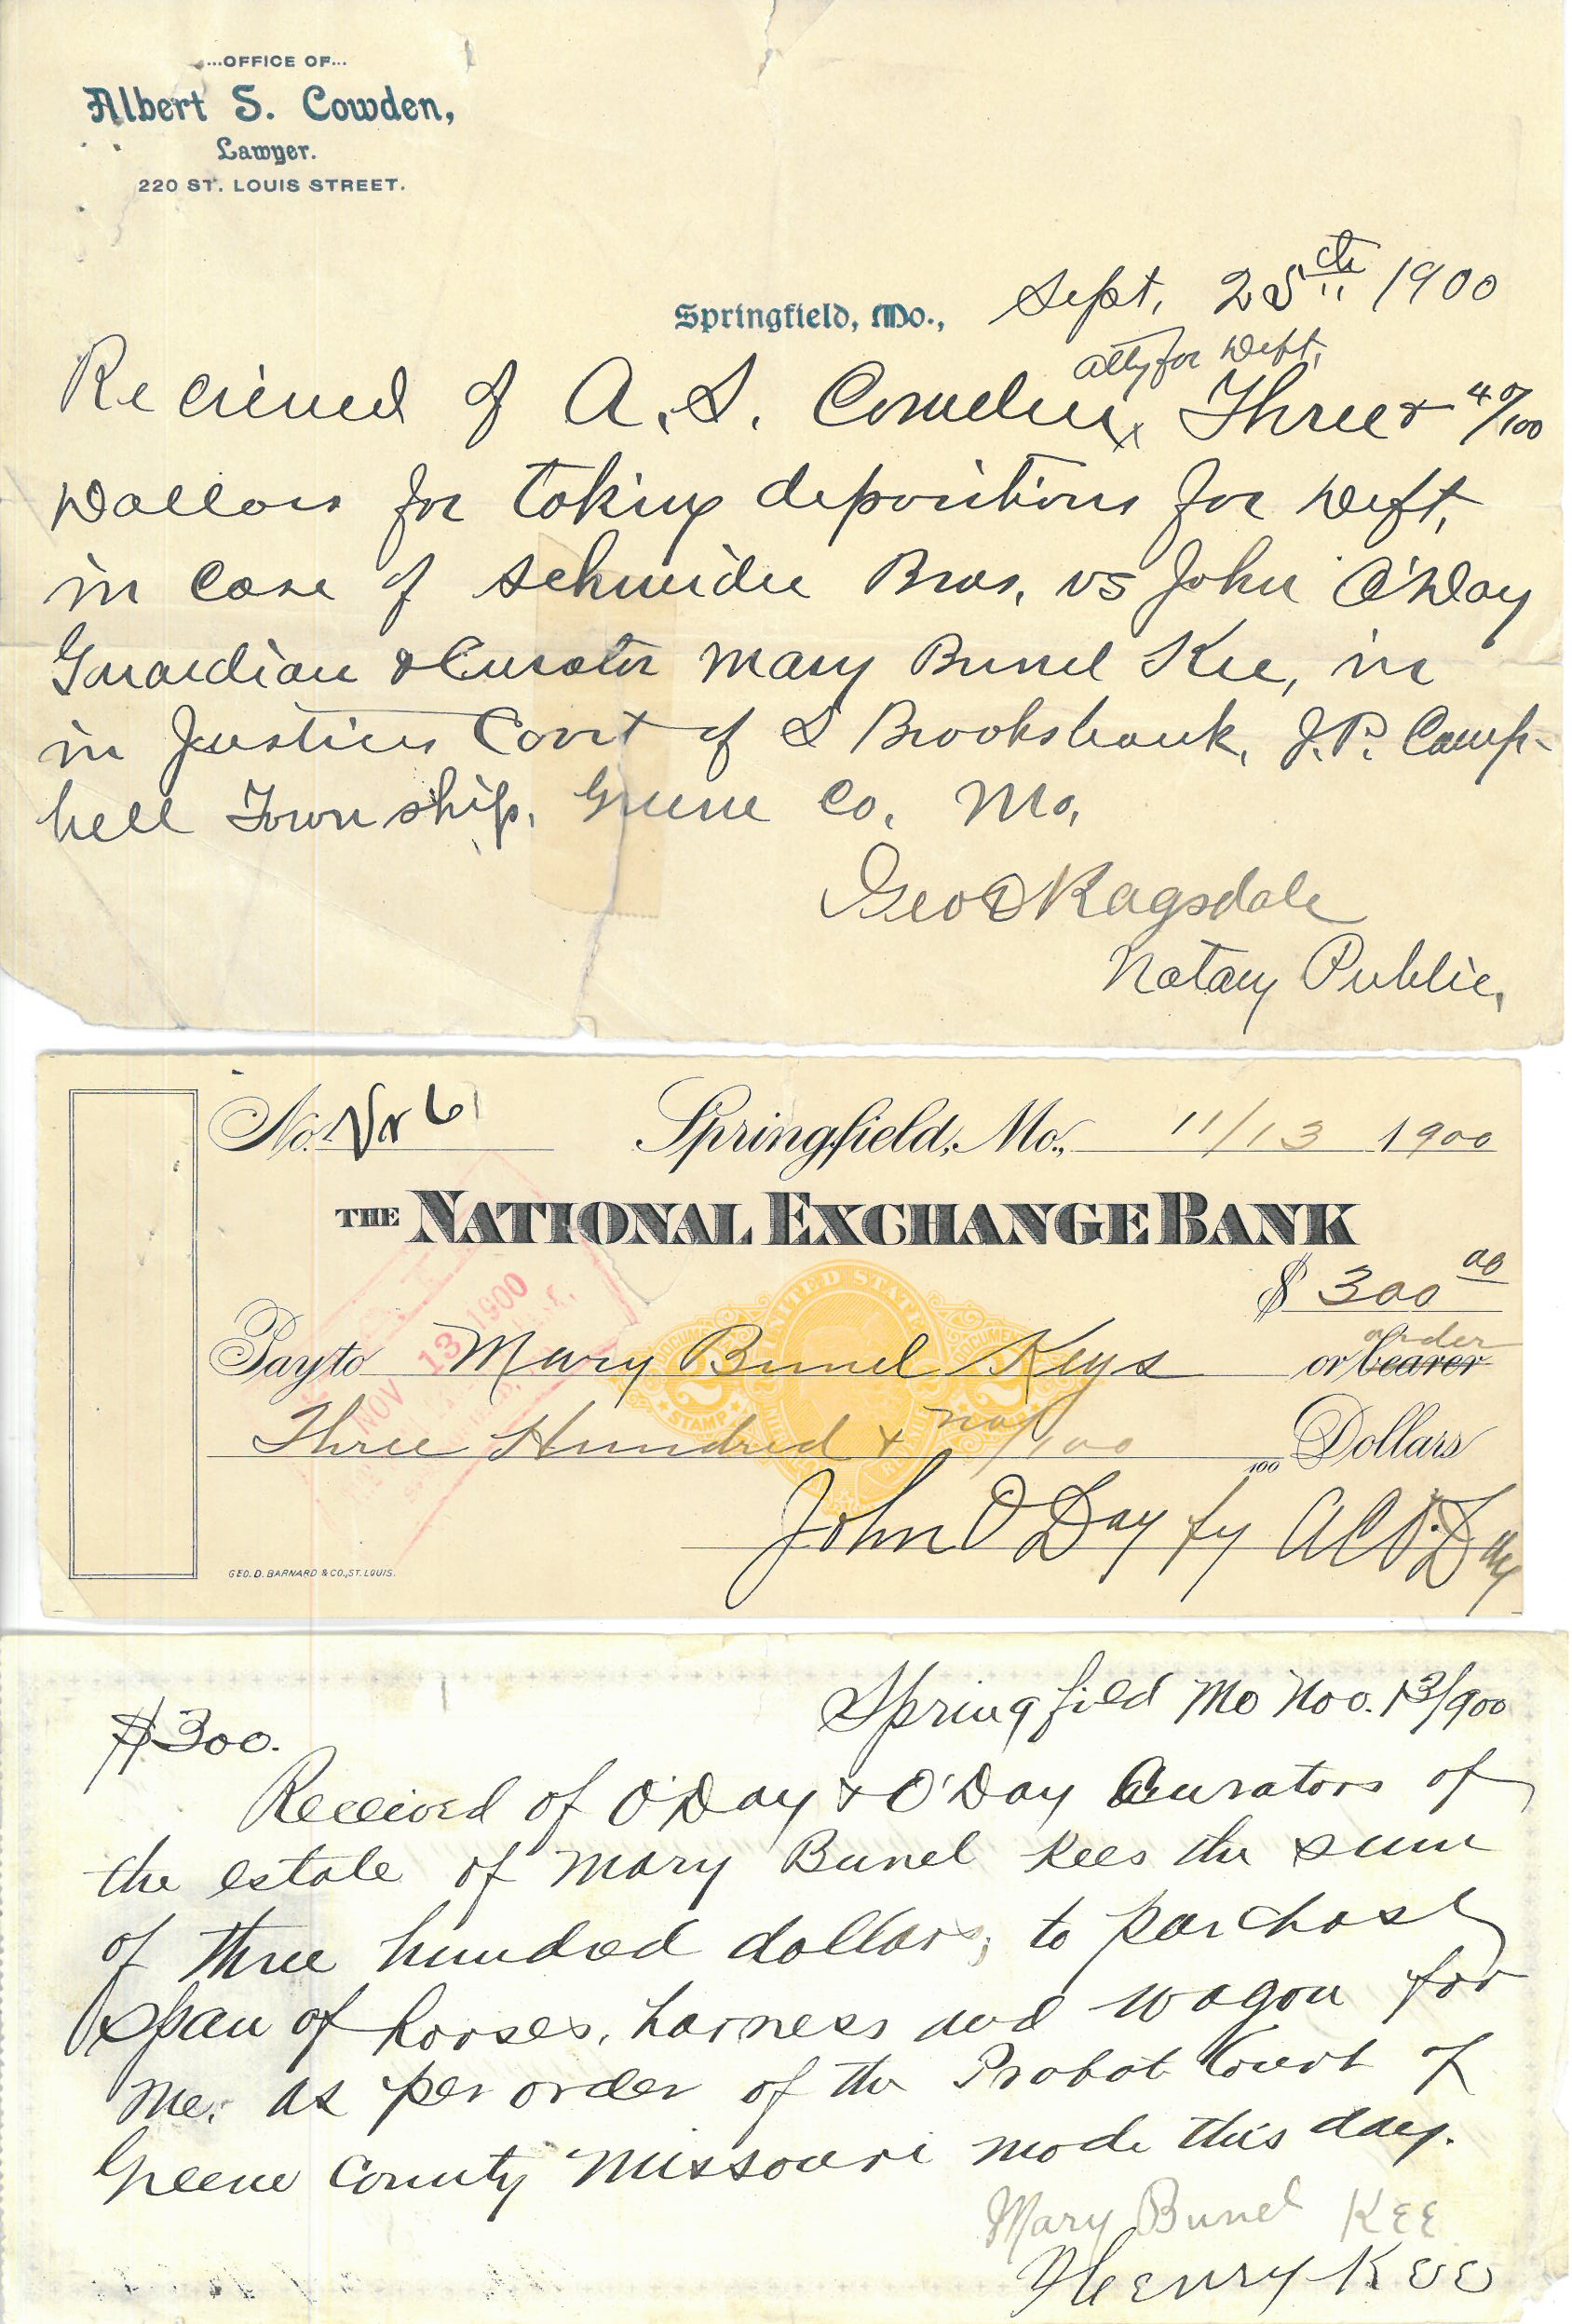 ...OFFICE OF...
Albert S. Cowden,
Lawyer.
220 ST. LOUIS STREET.
Springfield, Mo., Sept. 25th 1900
atty for Deft,
Recieved of A. S. Cowden, Three & 40/100
Dollars for taking depositions for Deft,
in case of Schneider Bros, vs John O'Day
Guardian & Curator Mary Bunel Kee, in
in Justices Court of S Brooksbank, J.P. Camp-
bell Township, Greene Co, Mo,
Geo D Ragsdale
Notary Public,
No. Vr 61 Springfield, Mo., 11/13 1900
THE NATIONAL EXCHANGE BANK
$ 300 00
order
Pay to Mary Bunel Keys or bearer
Three Hundred & no/100 /100 Dollars
John O'Day by A C O'Day
GEO. D. BARNARD & CO., ST. LOUIS.
NOV 13 1900
UNITED STATES
DOCUMENTARY
2 2
STAMP
$300. Springfield Mo Nov. 13/900
Received of O'Day & O'Day Curators of
the estate of Mary Bunel Kees the sum
of three hundred dollars, to purchase
span of horses, harness and wagon for
me. as per order of the Probat Court of
Greene County Missouri made this day.
Mary Bunel KEE
Henry Kee